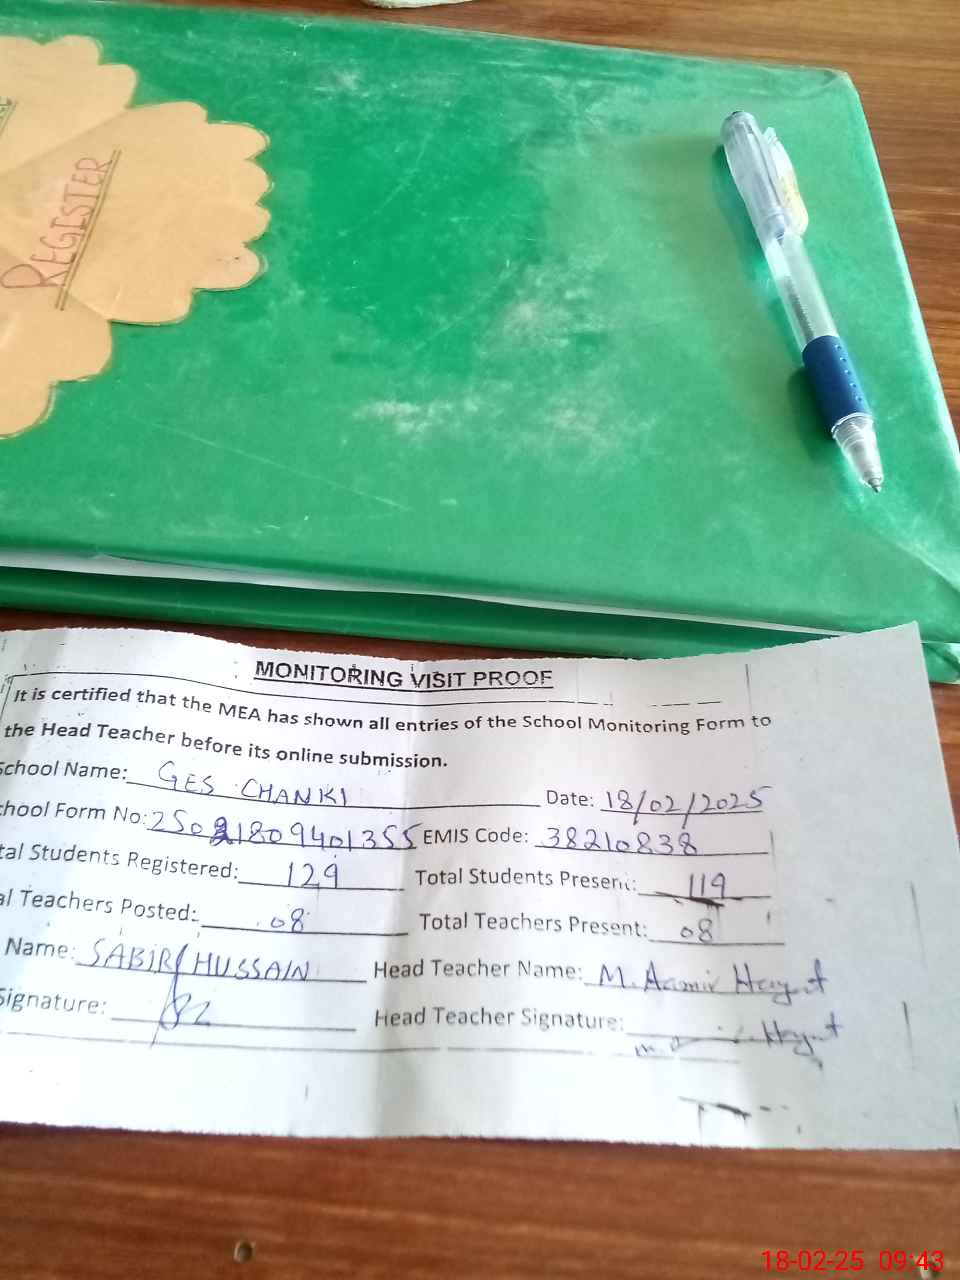 REGISTER
MONITORING VISIT PROOF
It is certified that the MEA has shown all entries of the School Monitoring Form to
the Head Teacher before its online submission.
School Name: GES CHANKI Date: 18/02/2025
chool Form No: 25021809401355 EMIS Code: 38210838
tal Students Registered: 129 Total Students Present: 119
al Teachers Posted: 08 Total Teachers Present: 08
Name: SABIR HUSSAIN Head Teacher Name: M. Aamir Hayat
Signature: Head Teacher Signature: Hayat
18-02-25 09:43